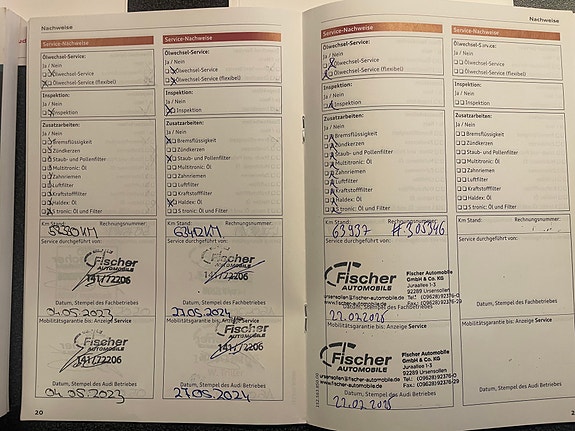 Nachweise
Service-Nachweise
Ölwechsel-Service:
Ja / Nein
Ölwechsel-Service
Ölwechsel-Service (flexibel)
Inspektion:
Ja / Nein
Inspektion
Zusatzarbeiten:
Ja / Nein
Bremsflüssigkeit
Zündkerzen
Staub- und Pollenfilter
Multitronic: Öl
Zahnriemen
Luftfilter
Kraftstofffilter
Haldex: Öl
S tronic: Öl und Filter
Km Stand: Rechnungsnummer:
KM
Service durchgeführt von:
Fischer
AUTOMOBILE
141/72206
Datum, Stempel des Fachbetriebes
04.05.2023
Mobilitätsgarantie bis: Anzeige Service
Fischer
AUTOMOBILE
141/72206
Datum, Stempel des Audi Betriebes
04.05.2023
20
Service-Nachweise
Ölwechsel-Service:
Ja / Nein
Ölwechsel-Service
Ölwechsel-Service (flexibel)
Inspektion:
Ja / Nein
Inspektion
Zusatzarbeiten:
Ja / Nein
Bremsflüssigkeit
Zündkerzen
Staub- und Pollenfilter
Multitronic: Öl
Zahnriemen
Luftfilter
Kraftstofffilter
Haldex: Öl
S tronic: Öl und Filter
Km Stand: Rechnungsnummer:
KM
Service durchgeführt von:
Fischer
AUTOMOBILE
141/72206
Datum, Stempel des Fachbetriebes
27.05.2024
Mobilitätsgarantie bis: Anzeige Service
Fischer
AUTOMOBILE
141/72206
Datum, Stempel des Audi Betriebes
27.05.2024
Nachweise
Service-Nachweise
Ölwechsel-Service:
Ja / Nein
Ölwechsel-Service
Ölwechsel-Service (flexibel)
Inspektion:
Ja / Nein
Inspektion
Zusatzarbeiten:
Ja / Nein
Bremsflüssigkeit
Zündkerzen
Staub- und Pollenfilter
Multitronic: Öl
Zahnriemen
Luftfilter
Kraftstofffilter
Haldex: Öl
S tronic: Öl und Filter
Km Stand: Rechnungsnummer:
63937 #305346
Service durchgeführt von:
Fischer
AUTOMOBILE
Fischer Automobile
GmbH & Co. KG
Juraallee 1-3
92289 Ursensollen
Tel.: (09628)92376-0
Fax: (09628)92376-29
ursensollen@fischer-automobile.de
www.fischer-automobile.de
Datum, Stempel des Fachbetriebes
Mobilitätsgarantie bis: Anzeige Service
Fischer
AUTOMOBILE
Fischer Automobile
GmbH & Co. KG
Juraallee 1-3
92289 Ursensollen
Tel.: (09628)92376-0
Fax: (09628)92376-29
ursensollen@fischer-automobile.de
www.fischer-automobile.de
Datum, Stempel des Audi Betriebes
Service-Nachweise
Ölwechsel-Service:
Ja / Nein
Ölwechsel-Service
Ölwechsel-Service (flexibel)
Inspektion:
Ja / Nein
Inspektion
Zusatzarbeiten:
Ja / Nein
Bremsflüssigkeit
Zündkerzen
Staub- und Pollenfilter
Multitronic: Öl
Zahnriemen
Luftfilter
Kraftstofffilter
Haldex: Öl
S tronic: Öl und Filter
Km Stand: Rechnungsnummer:
Service durchgeführt von:
Datum, Stempel des Fachbetriebes
Mobilitätsgarantie bis: Anzeige Service
Datum, Stempel des Audi Betriebes